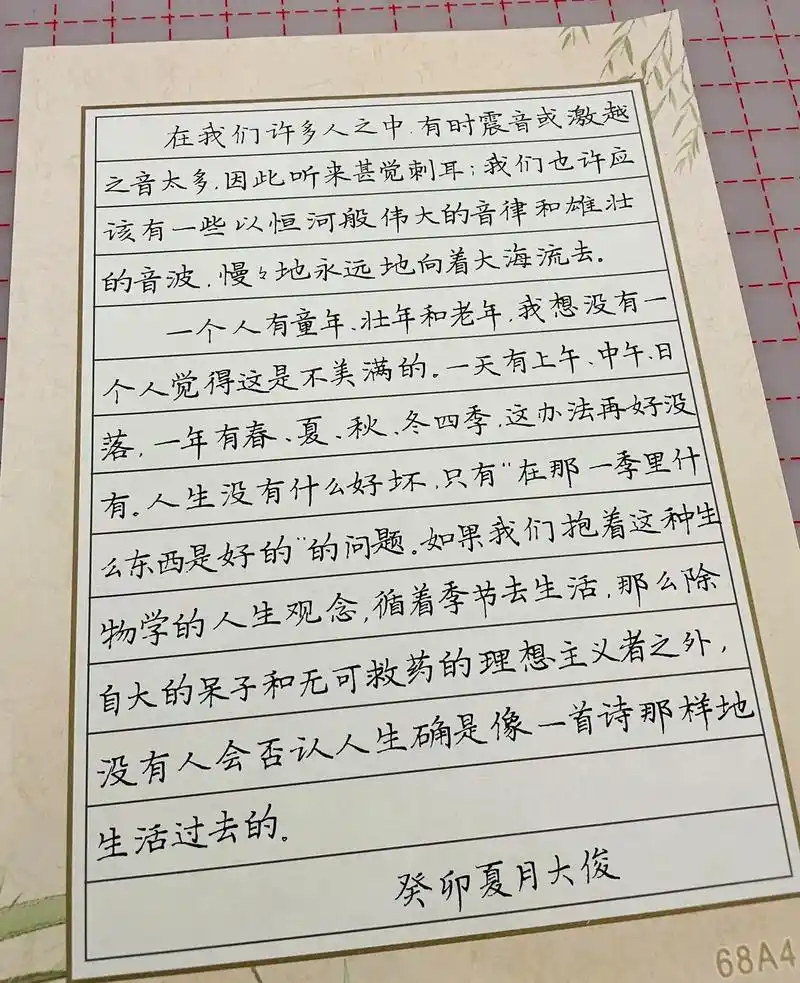 在我们许多人之中,有时震音或激越
之音太多,因此听来甚觉刺耳;我们也许应
该有一些以恒河般伟大的音律和雄壮
的音波,慢々地永远地向着大海流去。
一个人有童年、壮年和老年,我想没有一
个人觉得这是不美满的。一天有上午、中午、日
落,一年有春、夏、秋、冬四季,这办法再好没
有。人生没有什么好坏,只有“在那一季里什
么东西是好的”的问题。如果我们抱着这种生
物学的人生观念,循着季节去生活,那么除
自大的呆子和无可救药的理想主义者之外,
没有人会否认人生确是像一首诗那样地
生活过去的。
癸卯夏月大俊
68A4